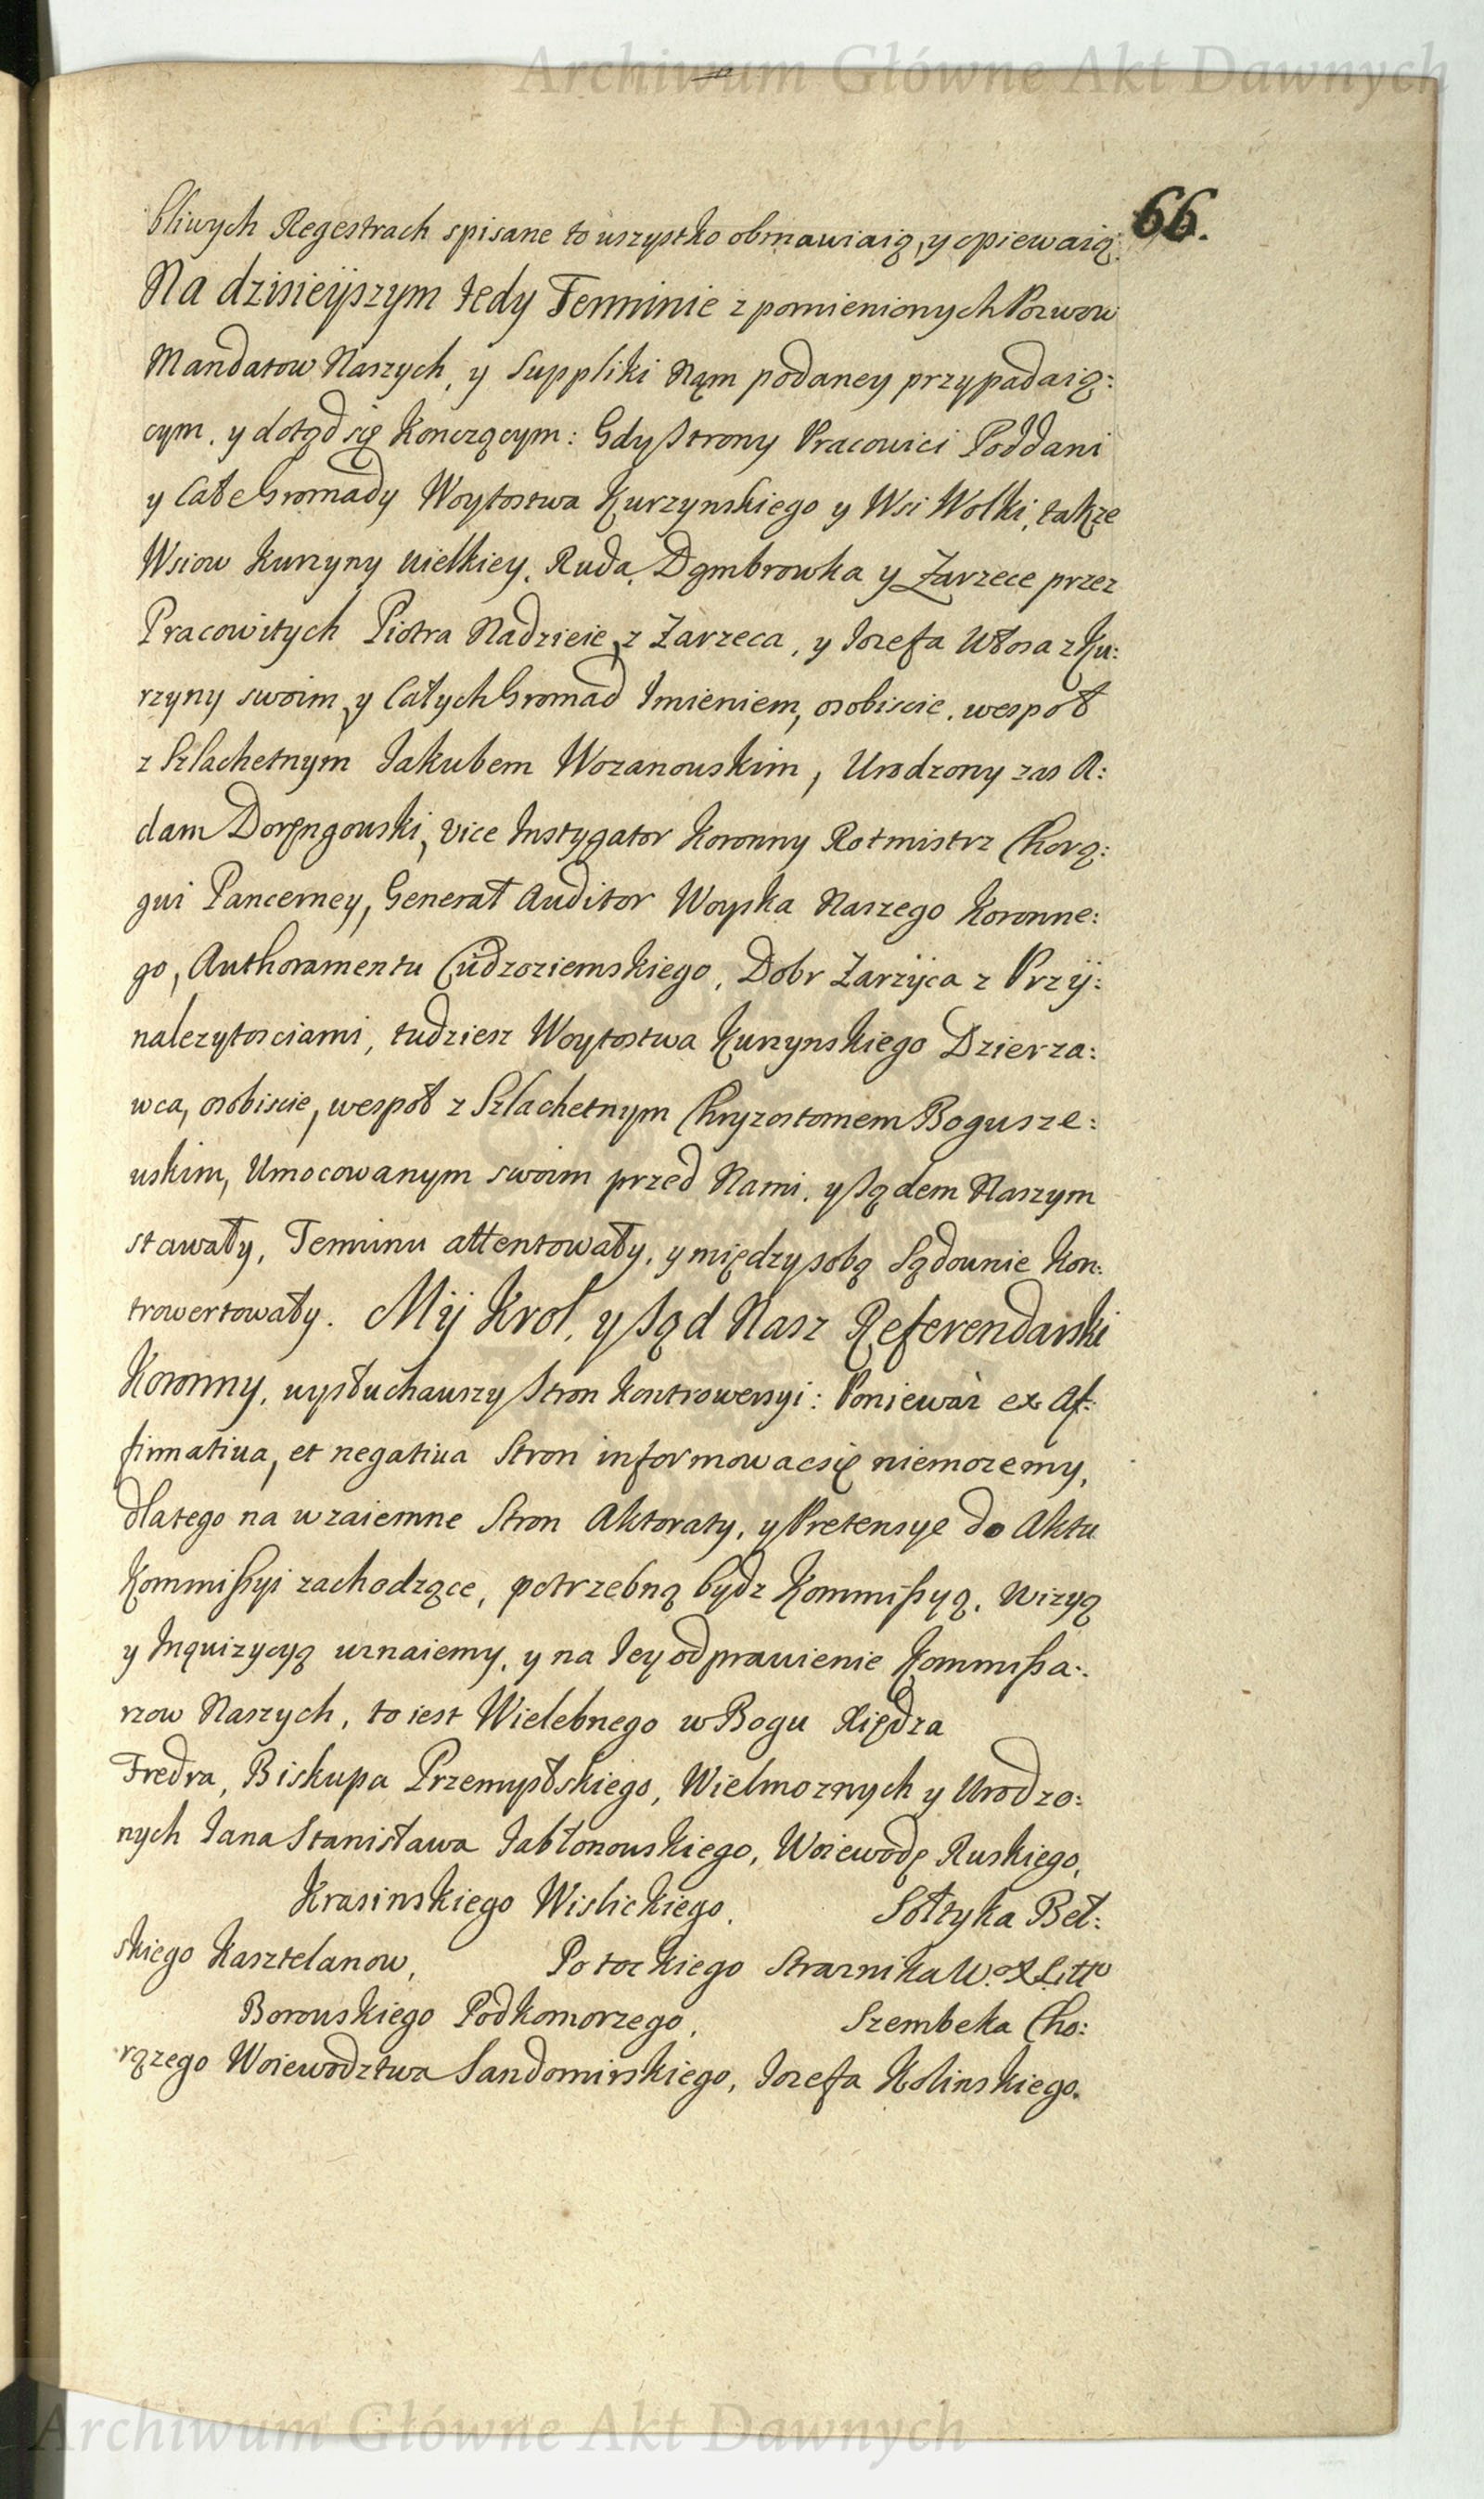 Archiwum Główne Akt Dawnych
66.
bliwych Regestrach spisane to wszystko obmawiaią, y opiewaią.
Na dzisieyszym tedy Terminie z pomienionych Pozwow
Mandatow Naszych, y Suppliki Nąm podaney przypadaią:
cym, y dotąd się konczącym: Gdy Strony Pracowici Poddani
y Całe Gromady Woytostwa Kurzynskiego y Wsi Wolki, także
Wsiow Kurzyny wielkiey, Ruda, Dąmbrowka y Zarzece przez
Pracowitych Piotra Nadzieie z Zarzeca, y Iozefa Włosa z Ku:
rzyny swoim y Całych Gromad Imieniem, osobiscie, wespoł
z Szlachetnym Iakubem Wozanowskim, Urodzony zas A:
dam Doręngowski, Vice Instygator Koronny Rotmistrz Chorą:
gwi Pancerney, Generał Auditor Woyska Naszego Koronne:
go, Authoramentu Cudzoziemskiego, Dobr Zarzyca z Przy:
nalezytosciami, tudziesz Woytostwa Kurzynskiego Dzierza:
wca, osobiscie, wespoł z Szlachetnym Chryzostomem Bogusze:
wskim, Umocowanym swoim przed Nami, y Sądem Naszym
stawały, Terminu attentowały, y między sobą Sądownie kon:
trowertowały. My Krol, y Sąd Nasz Referendarski
Koronny, wysłuchawszy Stron Kontrowersyi: Poniewaz ex Af:
firmativa, et negativa Stron informowac się niemozemy,
dlatego na wzaiemne Stron Aktoraty, y Pretensye do Aktu
Kommissyi zachodzące, potrzebną bydz Kommissyą, Wizyą
y Inquizycyą uznaiemy, y na Iey odprawienie Kommissa:
rzow Naszych, to iest Wielebnego w Bogu Xiędza
Fredra, Biskupa Przemysłskiego, Wielmoznych y Urodzo:
nych Iana Stanisława Iabłonowskiego, Woiewodę Ruskiego,
Krasinskiego Wislickiego, Sołtyka Beł:
skiego Kasztelanow, Potockiego Straznika W.º X Littº
Borowskiego Podkomorzego, Szembeka Cho:
rązego Woiewodztwa Sandomirskiego, Iozefa Kolinskiego.
Archiwum Główne Akt Dawnych